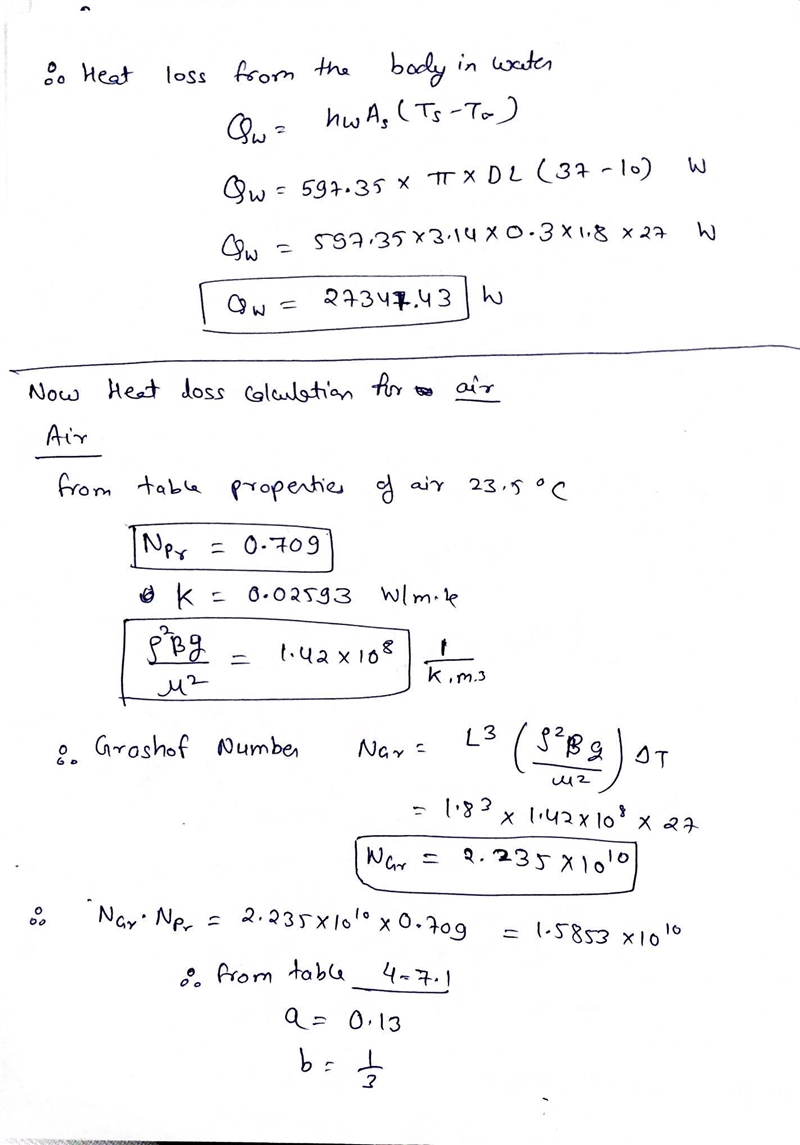 ∴ Heat loss from the body in water
Qw = hwAs (Ts - T∞)
Qw = 597.35 x π x DL (37 - 10) W
Qw = 597.35 x 3.14 x 0.3 x 1.8 x 27 W
Qw = 27347.43 W
Now Heat loss calculation for air
Air
from table properties of air 23.5 °C
NPr = 0.709
k = 0.02593 W/m.k
ρ²βg/μ² = 1.42 x 10⁸ 1/K.m.3
∴ Grashof Number NGr = L³ (ρ²βg/μ²) ΔT
= 1.8³ x 1.42 x 10⁸ x 27
NGr = 2.235 x 10¹⁰
∴ NGr. NPr = 2.235 x 10¹⁰ x 0.709 = 1.5853 x 10¹⁰
∴ from table 4-7.1
a = 0.13
b = 1/3